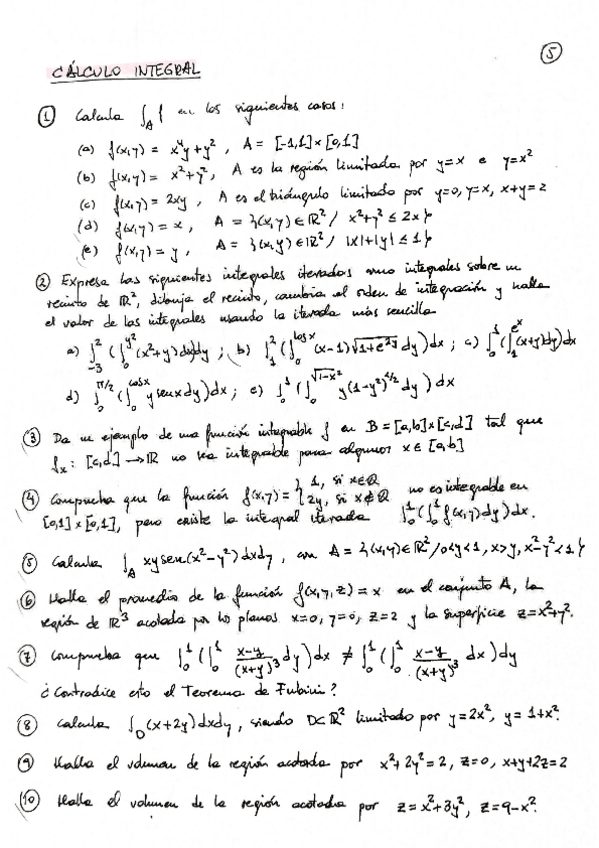 5
CÁLCULO INTEGRAL
① Calcula ∫_A f en los siguientes casos:
(a) f(x,y) = x⁴y + y², A = [-1,1]×[0,1]
(b) f(x,y) = x²+y², A es la región limitada por y=x e y=x²
(c) f(x,y) = 2xy, A es el triángulo limitado por y=0, y=x, x+y=2
(d) f(x,y) = x, A = {(x,y)∈ℝ² / x²+y² ≤ 2x}
(e) f(x,y) = y, A = {(x,y)∈ℝ² / |x|+|y| ≤ 1}
② Expresa las siguientes integrales iteradas como integrales sobre un
recinto de ℝ², dibuja el recinto, cambia el orden de integración y halla
el valor de las integrales usando la iterada más sencilla
a) ∫_{-3}^{2} (∫_0^{y²} (x²+y) dx) dy ; b) ∫_1^2 (∫_0^{log x} (x-1)√(1+e^{2y}) dy) dx ; c) ∫_0^1 (∫_1^{e^x} (x+y) dy) dx
d) ∫_0^{π/2} (∫_0^{cos x} y sen x dy) dx ; e) ∫_0^1 (∫_0^{√(1-x²)} y(1-y²)^{1/2} dy) dx
③ Da un ejemplo de una función integrable f en B = [a,b]×[c,d] tal que
f_x : [c,d] → ℝ no sea integrable para algunos x ∈ [a,b]
④ Comprueba que la función f(x,y) = { 1, si x∈ℚ ; 2y, si x∉ℚ no es integrable en
[0,1]×[0,1], pero existe la integral iterada ∫_0^1 (∫_0^1 f(x,y) dy) dx.
⑤ Calcula ∫_A xy sen(x²-y²) dxdy, con A = {(x,y)∈ℝ² / 0<y<1, x>y, x²-y²<1}
⑥ Halla el promedio de la función f(x,y,z) = x en el conjunto A, la
región de ℝ³ acotada por los planos x=0, y=0, z=2 y la superficie z=x²+y².
⑦ Comprueba que ∫_0^1 (∫_0^1 (x-y)/(x+y)³ dy) dx ≠ ∫_0^1 (∫_0^1 (x-y)/(x+y)³ dx) dy
¿Contradice esto el Teorema de Fubini?
⑧ Calcula ∫_D (x+2y) dxdy, siendo D⊂ℝ² limitado por y=2x², y=1+x².
⑨ Halla el volumen de la región acotada por x²+2y²=2, z=0, x+y+2z=2
⑩ Halla el volumen de la región acotada por z=x²+3y², z=9-x².